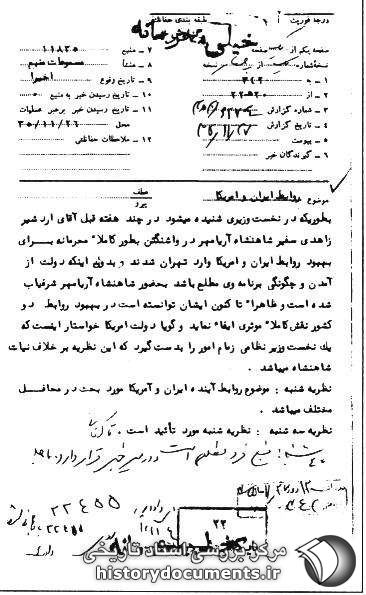 درجه فوریت
طبقه بندی حفاظتی
خیلی محرمانه
صفحه یکم از صفحه
نسخه شماره از نسخه
۱ - به ۳۴۲
۲ - از ۲۲ ه ۲۰
۳ - شماره گزارش
۴ - تاریخ گزارش
۵ - پیوست
۶ - گیرندگان خبر
۷ - منبع ۱۱۸۳۵
۸ - منشأ مسموعات منبع
۹ - تاریخ وقوع اخیرا
۱۰ - تاریخ رسیدن خبر به منبع
۱۱ - تاریخ رسیدن خبر برهبر عملیات
محل ۳۵/۱۱/۲۶
۱۲ - ملاحظات حفاظتی
موضوع روابط ایران و امریکا
عطف
پیرو
بطوریکه در نخست وزیری شنیده میشود در چند هفته قبل آقای اردشیر
زاهدی سفیر شاهنشاه آریامهر در واشنگتن بطور کاملا" محرمانه برای
بهبود روابط ایران و امریکا وارد تهران شدند و بدون اینکه دولت از
آمدن و چگونگی برنامه وی مطلع باشد بحضور شاهنشاه آریامهر شرفیاب
شده است و ظاهرا" تا کنون ایشان توانسته است در بهبود روابط دو
کشور نقش کاملا" موثری ایفاء نماید و گویا دولت امریکا خواستار اینست که
یک نخست وزیر نظامی زمام امور را بدست گیرد که این نظریه بر خلاف نیات
شاهنشاه میباشد .
نظریه شنبه : موضوع روابط آینده ایران و آمریکا مورد بحث در محافل
مختلف میباشد .
نظریه سه شنبه : نظریه شنبه مورد تأئید است .
منبع فرد مطلعی است و در مسیر خبر قرار دارد
۲۲۴۵۵
۲۲۴۵۵
۲۲
خیلی محرمانه
مرکز بررسی اسناد تاریخی
historydocuments.ir